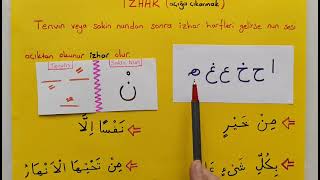 IZHAR (açığa çıkarmak)
Tenvin veya sakin nundan sonra izhar harfleri gelirse nun sesi
açıktan okunur izhar olur.
Tenvin Sakin Nun
نْ
ا ح خ ع غ ه
مِنْ خَيْرٍ
نَفْسًا اِلَّا
بِكُلِّ شَيْءٍ
مِنْ تَحْتِهَا الْاَنْهَارُ